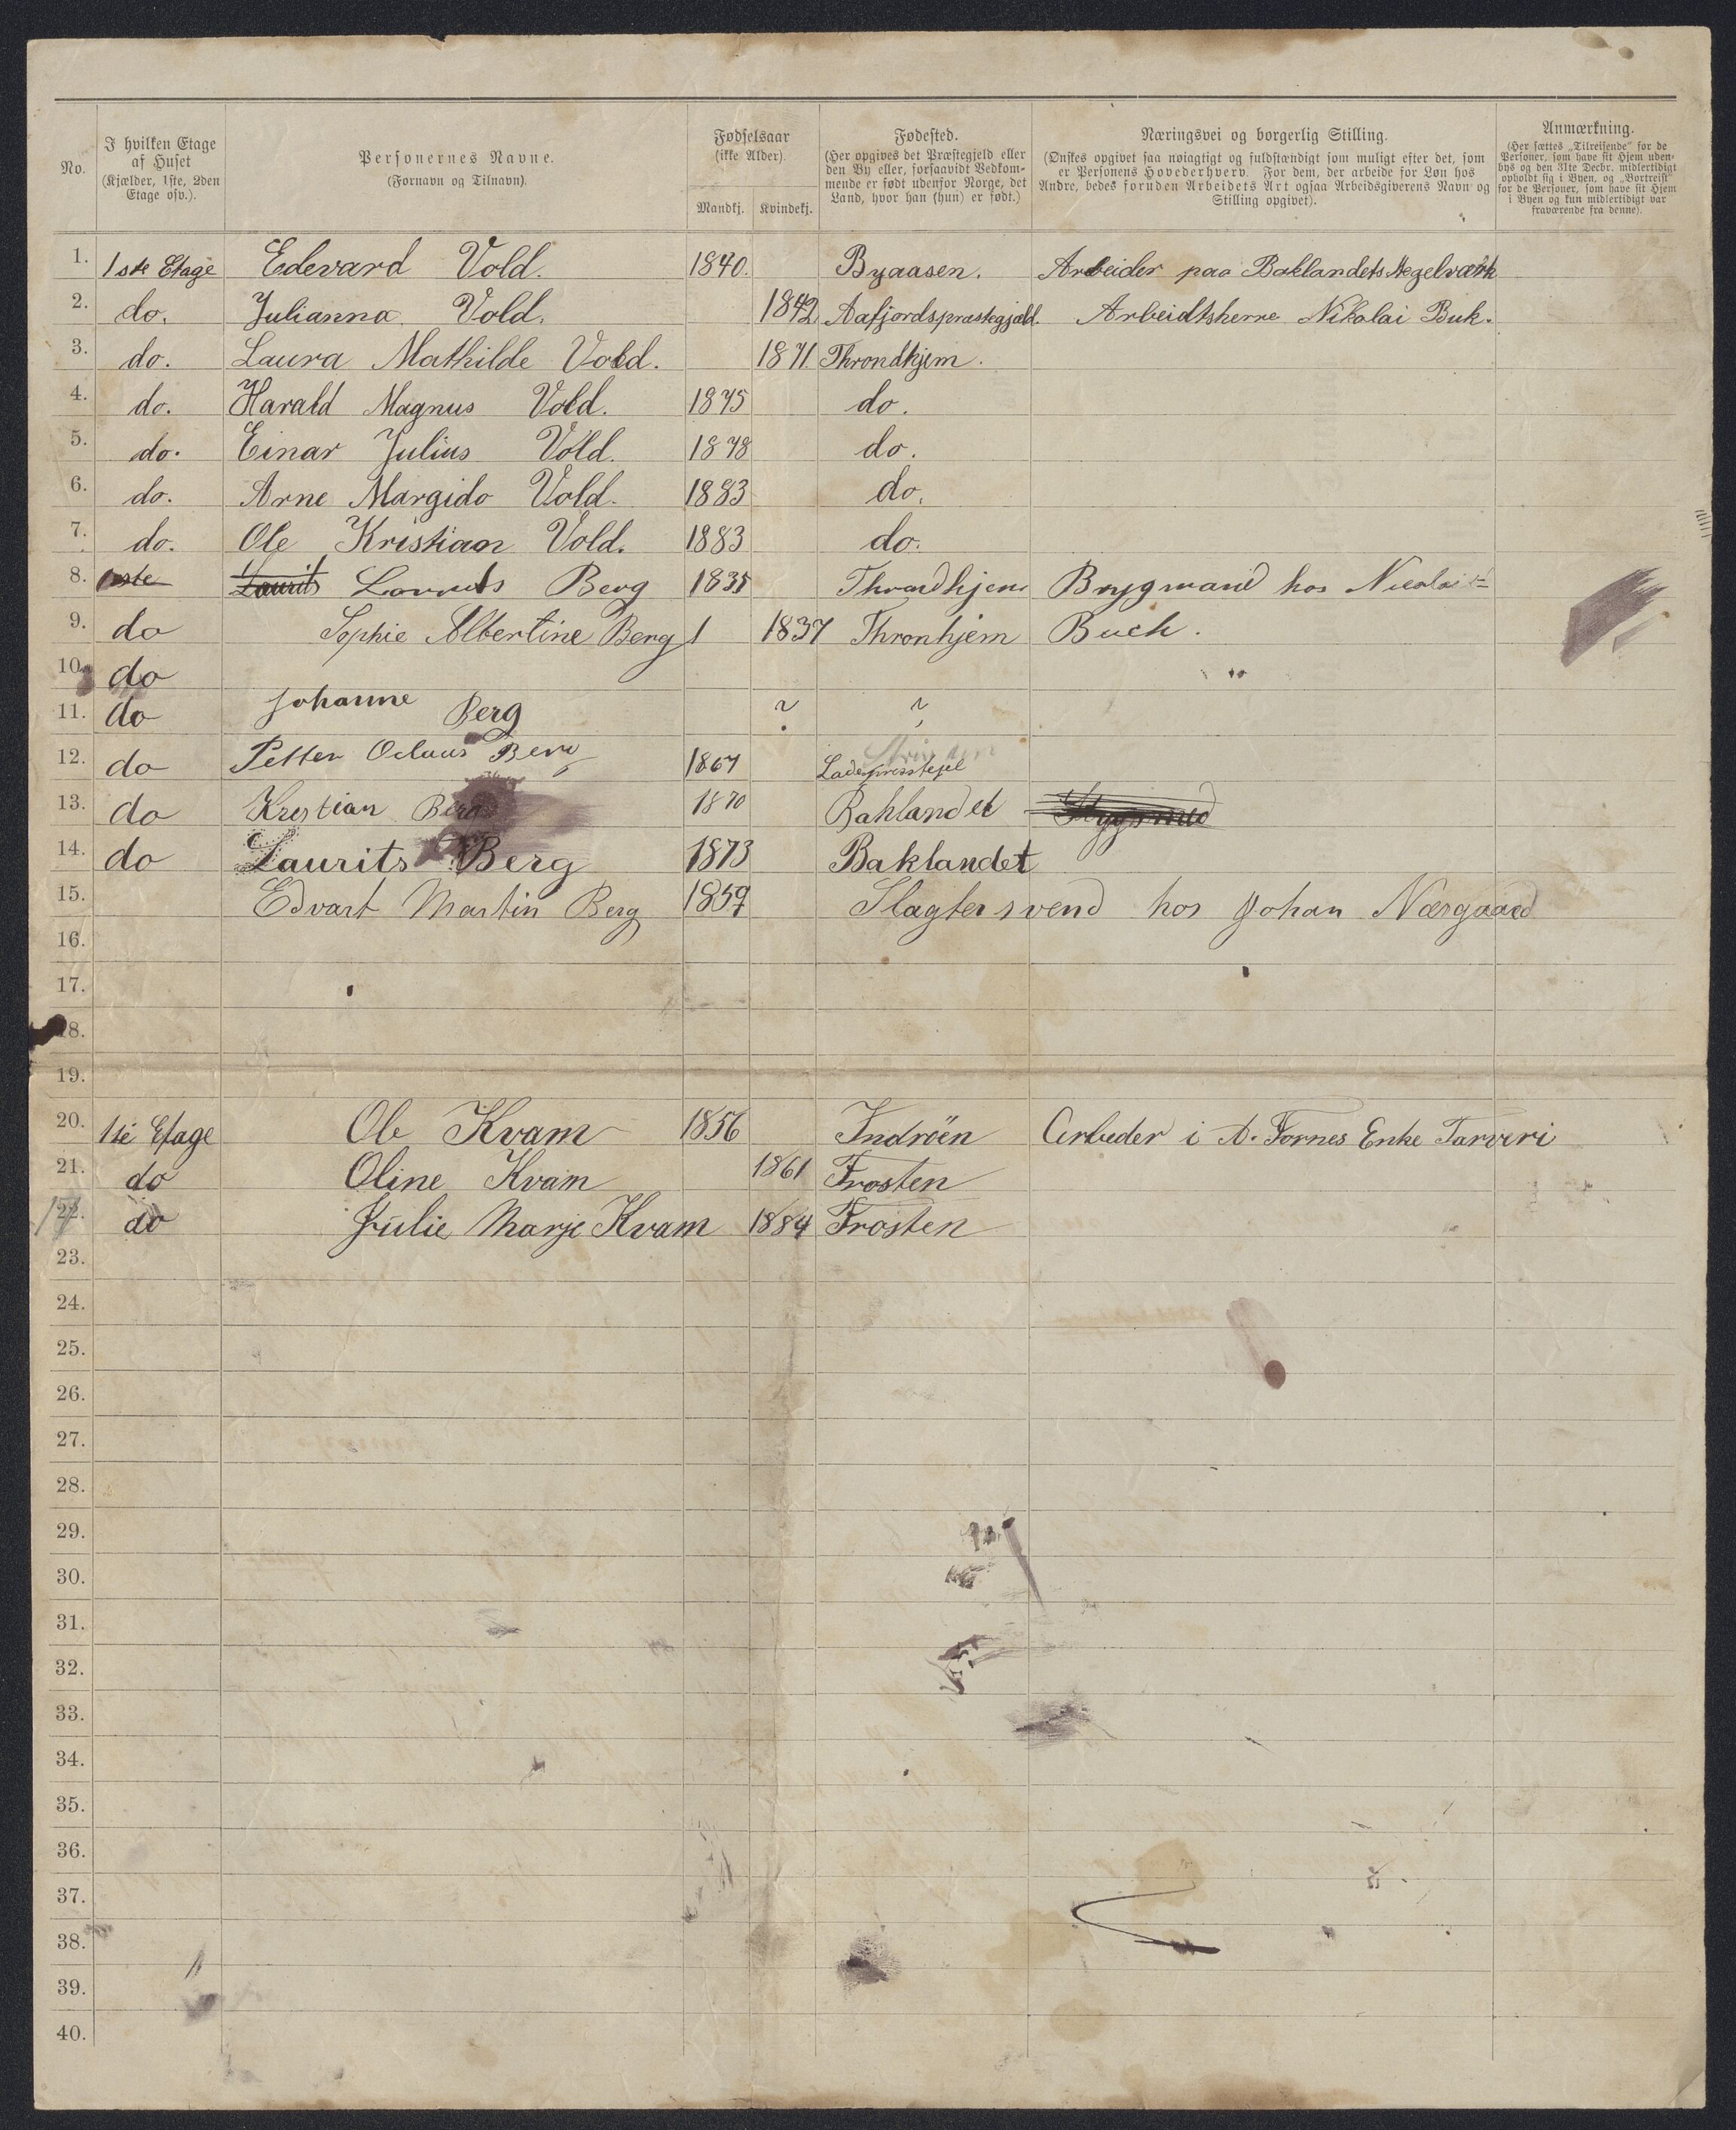 No.
I hvilken Etage af Huset (Kjælder, 1ste, 2den Etage osv.).
Personernes Navne. (Fornavn og Tilnavn).
Fødselsaar (ikke Alder).
Mandkj. Kvindekj.
Fødested. (Her opgives det Præstegjeld eller den By eller, forsaavidt Vedkommende er født udenfor Norge, det Land, hvor han (hun) er født.)
Næringsvei og borgerlig Stilling. (Ønskes opgivet saa nøiagtigt og fuldstændigt som muligt efter det, som er Personens Hovederhverv. For dem, der arbeide for Løn hos Andre, bedes foruden Arbeidets Art ogsaa Arbeidsgiverens Navn og Stilling opgivet).
Anmærkning. (Her sættes „Tilreisende“ for de Personer, som have sit Hjem udenbys og den 31te Decbr. midlertidigt opholdt sig i Byen, og „Bortreist“ for de Personer, som have sit Hjem i Byen og kun midlertidigt var fraværende fra denne).
1. 1ste Etage Edevard Vold. 1840. Byaasen. Arbeider paa Baklandets Tegelværk
2. do. Julianna Vold. 1842 Aafjordspræstegjæld. Arbeidtsherre Nikolai Buk.
3. do. Laura Mathilde Vold. 1871. Throndhjem.
4. do. Harald Magnus Vold. 1875 do.
5. do. Einar Julius Vold. 1878 do.
6. do. Arne Margido Vold. 1883 do.
7. do. Ole Kristian Vold. 1883 do.
8. Laurits Laurits Berg 1835 Throndhjem Brygmand hos Nicolai
9. do Sophie Albertine Berg 1 1837 Thronhjem Buch.
10. do
11. do Johanne Berg ? ?
12. do Petter Odaus Berg 1867 Strinden
13. do Kristian Berg 1870 Baklandet
14. do Laurits Berg 1873 Baklandet
15. Edvart Martin Berg 1859 Slagtersvend hos Johan Næsgaard
16.
17.
18.
19.
20. 1ste Etage Ole Kvam 1856 Indröen Arbeder i A. Fornes Enke Tarveri
21. do Oline Kvam 1861 Frosten
22. do Julie Marje Kvam 1884 Frosten
23.
24.
25.
26.
27.
28.
29.
30.
31.
32.
33.
34.
35.
36.
37.
38.
39.
40.